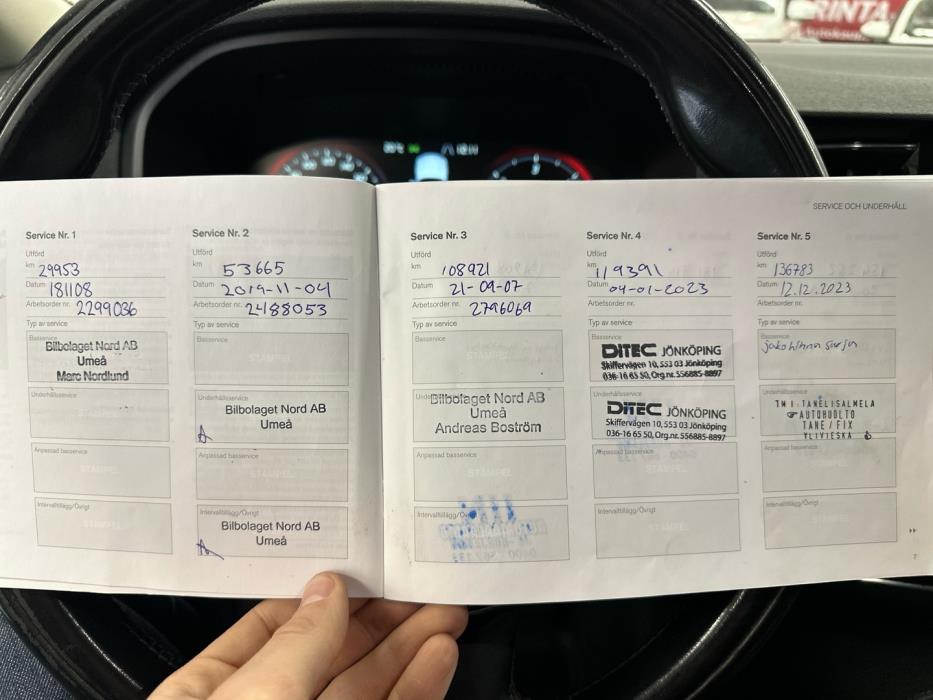 RINTA
SERVICE OCH UNDERHÅLL
Service Nr. 1
Utförd
km 29953
Datum 181108
Arbetsorder nr. 2299036
Typ av service
Bilbolaget Nord AB
Umeå
Marc Nordlund
Underhållsservice
Anpassad basservice
Intervalltillägg/Övrigt
Service Nr. 2
Utförd
km 53665
Datum 2019-11-04
Arbetsorder nr. 2488053
Typ av service
Basservice
STÄMPEL
Underhållsservice
Bilbolaget Nord AB
Umeå
Anpassad basservice
STÄMPEL
Intervalltillägg/Övrigt
Bilbolaget Nord AB
Umeå
Service Nr. 3
Utförd
km 108921
Datum 21-09-07
Arbetsorder nr. 2796069
Typ av service
Basservice
STÄMPEL
Bilbolaget Nord AB
Umeå
Andreas Boström
Anpassad basservice
STÄMPEL
Intervalltillägg/Övrigt
Service Nr. 4
Utförd
km 119391
Datum 04-01-2023
Arbetsorder nr.
Typ av service
Basservice
DITEC JÖNKÖPING
Skiffervägen 10, 553 03 Jönköping
036-16 65 50, Org.nr. 556885-8897
DITEC JÖNKÖPING
Skiffervägen 10, 553 03 Jönköping
036-16 65 50, Org.nr. 556885-8897
Anpassad basservice
STÄMPEL
Intervalltillägg/Övrigt
STÄMPEL
Service Nr. 5
Utförd
km 136783
Datum 12.12.2023
Arbetsorder nr.
Typ av service
Basservice
Underhållsservice
TMI TANELI SALMELA
AUTOHUOLTO
TANE / FIX
YLIVIESKA
Anpassad basservice
Intervalltillägg/Övrigt
7